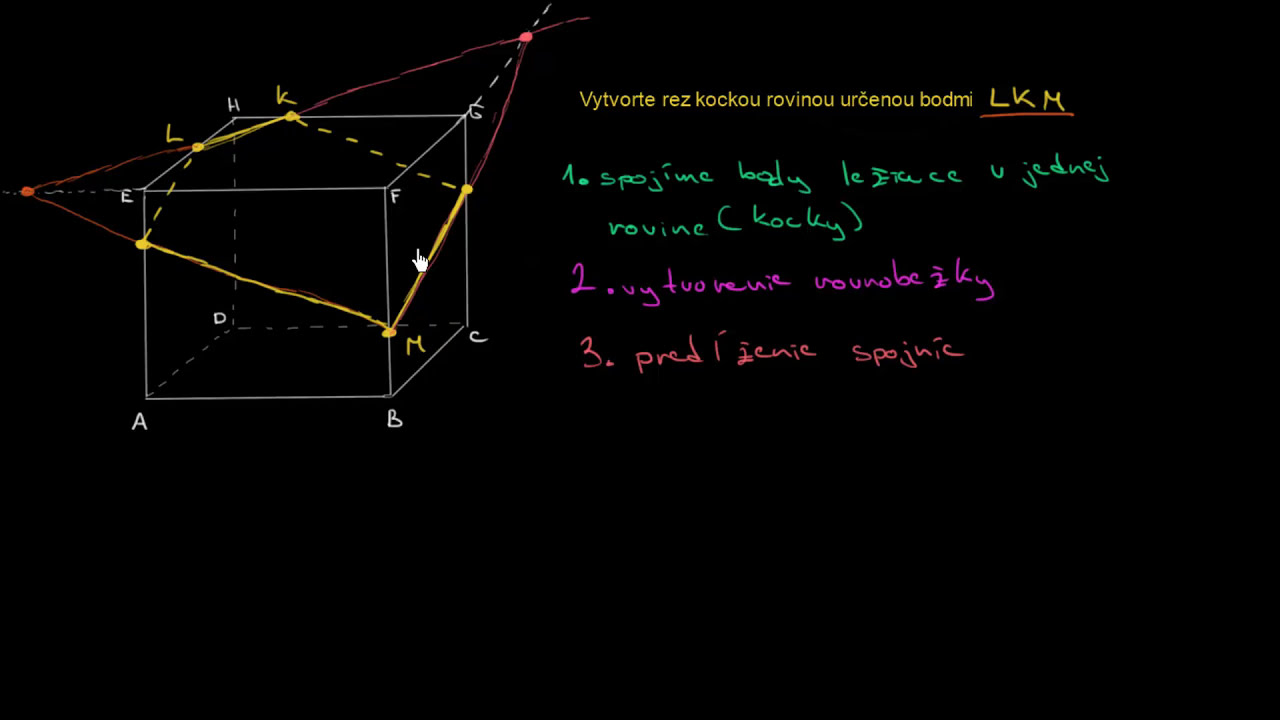 H
K
L
E
F
G
D
M
C
A
B
Vytvorte rez kockou rovinou určenou bodmi LKM
1. spojíme body ležiace v jednej
rovine (kocky)
2. vytvorenie rovnobežky
3. predĺženie spojnic